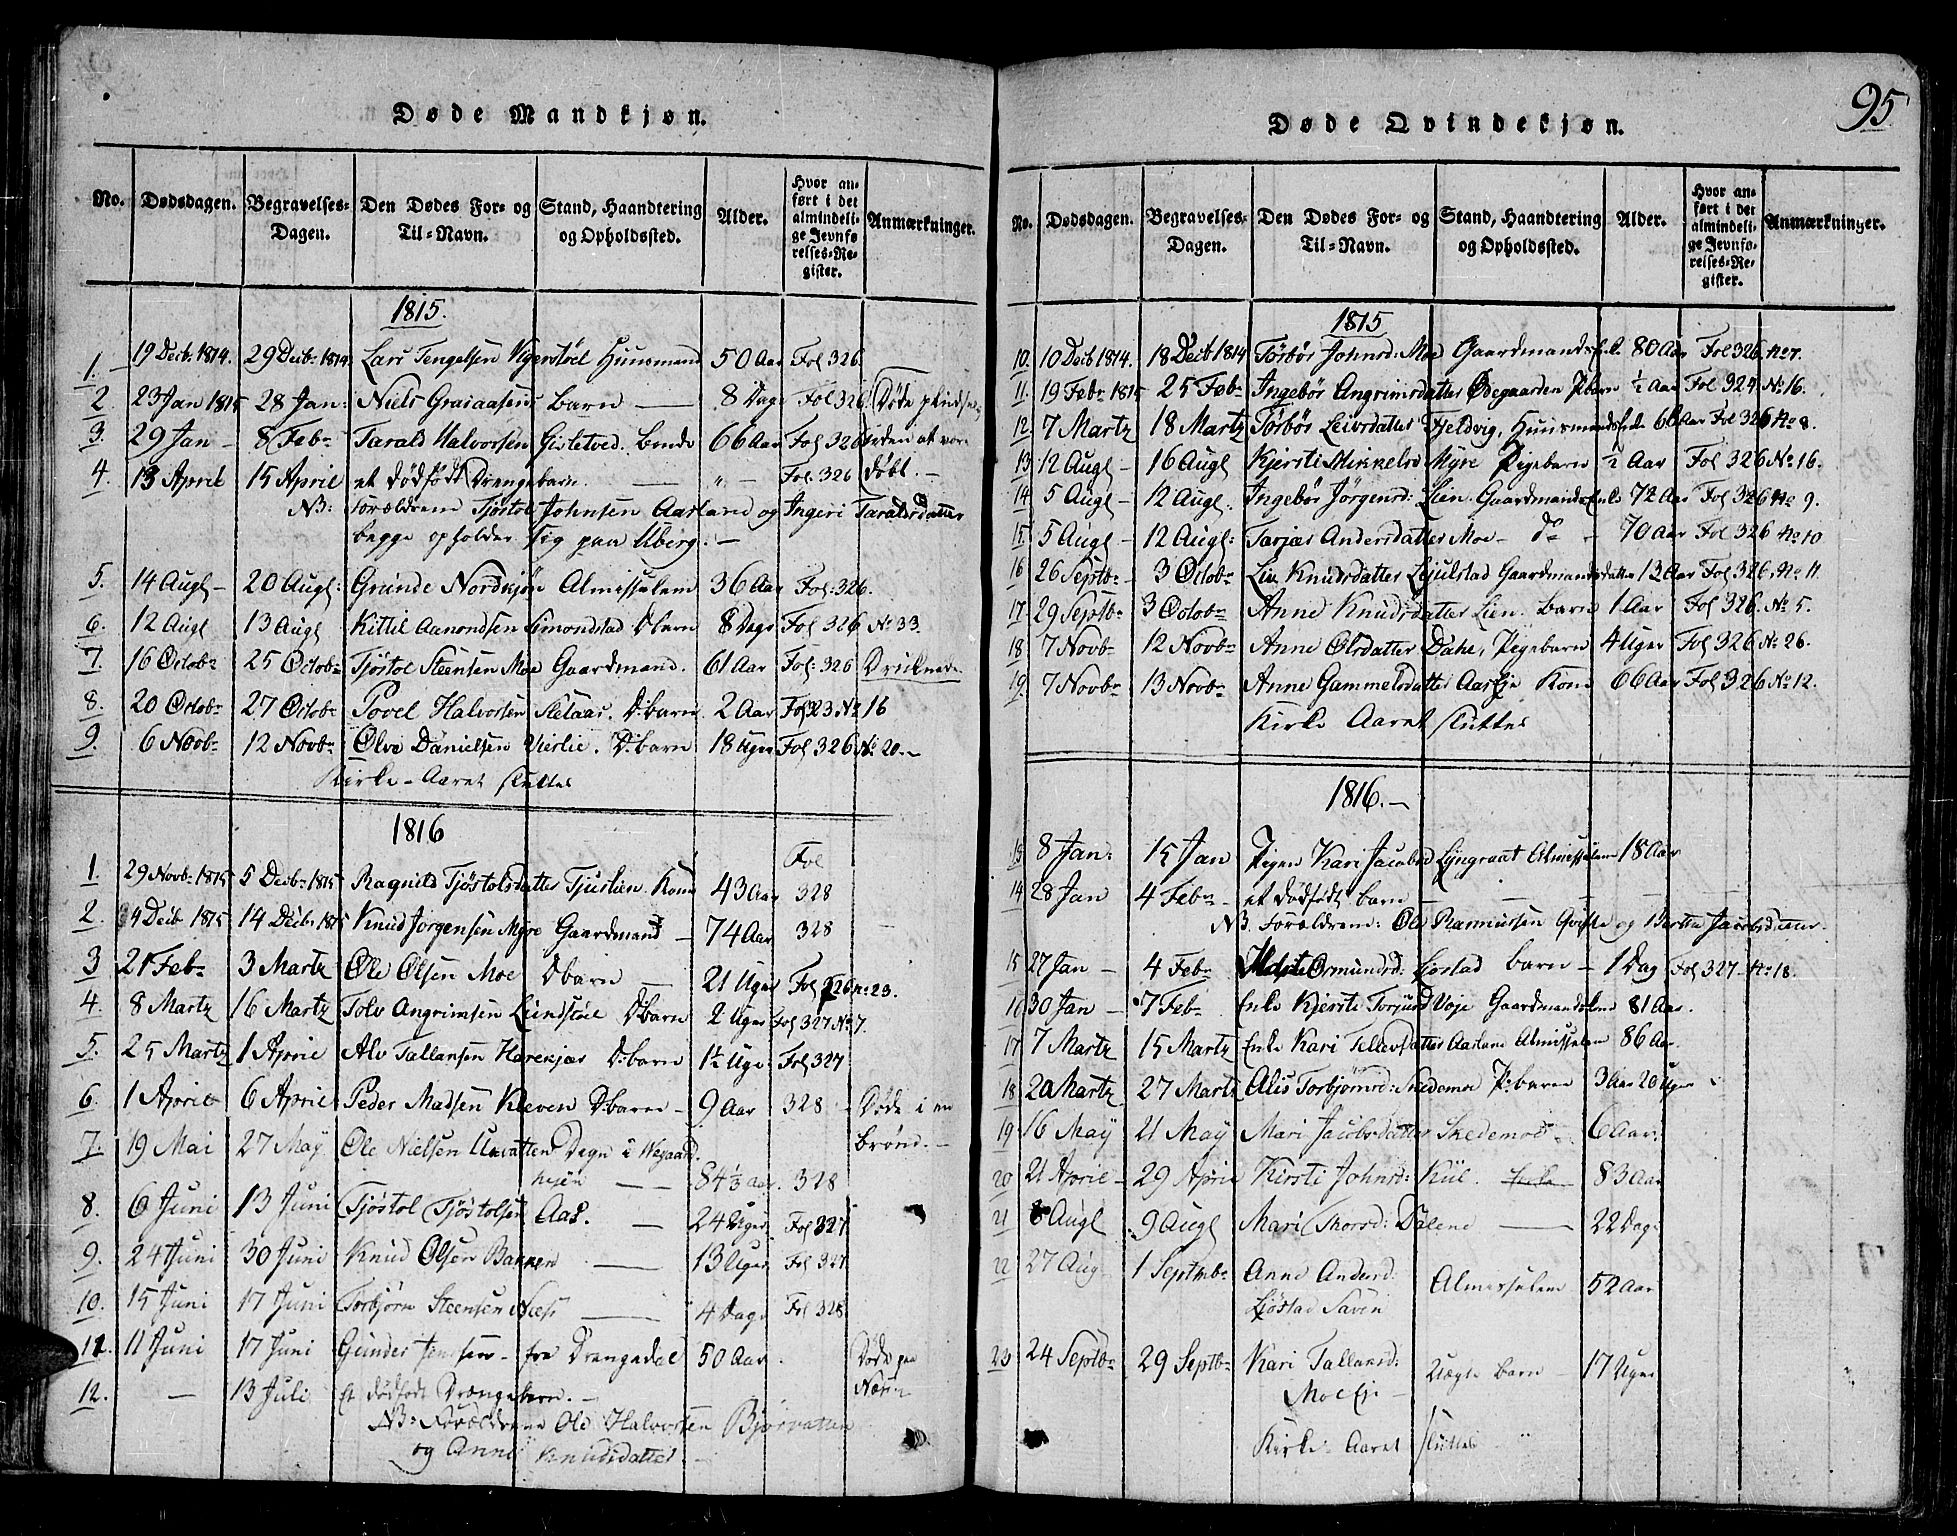 Døde Mandkjøn.
No. Dødsdagen. Begravelses-Dagen. Den Dødes For- og Til-Navn. Stand, Haandtering og Opholdssted. Alder. Hvor anført i det almindelige Jevnførelses-Register. Anmærkninger.
1815.
1. 19 Decb. 1814. 29 Decb. 1814 Lars Tengelsen Huusmand 50 Aar Fol 326
2. 23 Jan 1815 28 Jan: Niels Graiaasens barn — 8 Dage Fol 326 Døde
3. 29 Jan — 8 Feb. Tarald Halvorsen Gisletved. 66 Aar Fol 326 uden at være
4. 13 April 15 April et dødfødt Drengebarn. — " — Fol 326 døbt. —
NB: Forældrene Tjøstol Johnsen Aasland og Ingeri Taraldsdatter
begge opholder sig paa Uberg. —
5. 14 Augl — 20 Augl: Grunde Nordkjøn Almisselem 36 Aar Fol: 326.
6. 12 Augl 13 Augl Kittil Aanondsen Simonstad D barn 8 Dage Fol 326 No 33.
7. 16 Octob. 25 Octob. Tjøstol Steensen Moe Gaardmand. 61 Aar Fol: 326 Druknede
8. 20 Octob. 27 Octob. Povel Halvorsen Sletaas. D: barn. 2 Aar No 16
9. 6 Novb. 12 Novb. Ølve Danielsen Vierlie. D: barn 18 Uger Fol 326 No 20. —
Kirke-Aaret sluttes
1816
1. 29 Novb. 1815 5 Decb. 1815 Ragnild Tjøstolsdatter Tjuslien. Kone 43 Aar Fol 328
2. 4 Decb 1815 14 Decb. 1815 Knud Jørgensen Myre Gaardmand — 74 Aar 328
3 21 Feb. 3 Martz Ole Olsen Moe D barn — 21 Uger Fol 326 No 23.
4. 8 Martz 16 Martz Tolv Angrimsen Liendstøle D: barn 2 Uger Fol 327 No 7.
5. 25 Martz 1 Aprile Alv Tallaksen Harekjær D: barn 1½ Uge Fol 327
6. 1 Aprile 6 Aprile Peder Madsen Kleven D: barn — 9 Aar 328 Døde i en
7. 19 Mai 27 May Ole Nielsen Ubatten Degn i Wegaard brønd. —
— 84½ Aar. 328
8. 6 Juni 13 Juni Tjøstol Tjøstolsen Aas. — 24 Uger Fol 327
9. 24 Juni 30 Juni Knud Olsen Bakken — 13 Uger Fol 327
10. 15 Juni 17 Juni Torbjørn Steensen Næss — 4 Dage Fol 328
11. 11 Juni 17 Juni Gunder Jensen — fra Drangedal 50 Aar. Døde paa
12. — 13 Juli Et dødfødt Drængebarn. —
NB: Forældrene Old Halvorsen Bjorvatten
og Anne Knudsdatter —
95
Døde Qvindekjøn.
No. Dødsdagen. Begravelses-Dagen. Den Dødes For- og Til-Navn. Stand, Haandtering og Opholdssted. Alder. Hvor anført i det almindelige Jevnførelses-Register. Anmærkninger.
1815
10. 10 Decb 1814. 18 Decb 1814 Torbør Johnsd: Moe Gaardmands Enke 80 Aar Fol 326 No 7.
11. 19 Feb. 1815 25 Feb. Ingebør Angrimsdatter Ødegaarden P barn ½ Aar Fol 324 No 16.
12. 7 Martz 18 Martz Torbør Leivsdatter Fjeldvig, Huusmands 66 Aar Fol 326 No 8.
13 12 Augl — 16 Augl Kjersti Mikkelsd Myre Pigebarn ½ Aar Fol 326 No 16.
14 5 Augl — 12 Augl. Ingebør Jørgensd: Lien. Gaardmands Enke 72 Aar Fol 326 No 9.
15 5 Augl — 12 Augl: Tarjær Andersdatter Moe — do — 70 Aar Fol 326 No 10
16 26 Septb. — 3 Octob. Liv Knudsdatter Ljulstad Gaardmandsdatter 13 Aar Fol 326. No 11.
17. 29 Septb. 3 Octob. Anne Knudsdatter Lien. barn 1 Aar Fol 326. No 5.
18 7 Novb. 12 Novb. Anne Olsdatter Dahe, Pigebarn 4 Uger Fol 326 No 26.
19. 7 Novb. 13 Novb. Anne Gammelsdatter Aas Kone 66 Aar Fol 326 No 12.
Kirke Aaret sluttes
1816. —
13 8 Jan: 15 Jan Pigen Kari Jacobsd Lyngraat Almisselem 18 Aar
14 28 Jan 4 Feb. — et dødfødt barn — — —
NB. Forældrene: Ole Rasmussen Qviste og Berthe Jacobsdatter.
15 27 Jan — 4 Feb. Ormundsd: Liøstad barn — 1 Dag Fol 327 — No 18.
16 30 Jan — 7 Feb. Enke Kjersti Torjusd Voje Gaardmands 81 Aar.
17 7 Martz 15 Martz Enke Kari Tellefsdatter Aaslane Almisselem 86 Aar.
18 20 Martz 27 Martz Alis Torbjørnsd: Skedemoe P: barn 3 Aar 20 Uger
19 16 May 21 May Mari Jacobsdatter Skedemoe — 6 Aar.
20 21 Aprile — 29 Aprile Kirsti Johnsd: Kiil. 83 Aar
21 8 Augl 9 Augl Mari Thorsd: Dalene — 22 Dage
22 27 Aug 1 Septmb. Anne Andersd: Almisselem 52 Aar
Liøstad Saven
23 24 Septb. 29 Septb. Kari Tallaksd: Uægte barn — 17 Uger
Moe Eje —
Kirke-Aaret sluttes "